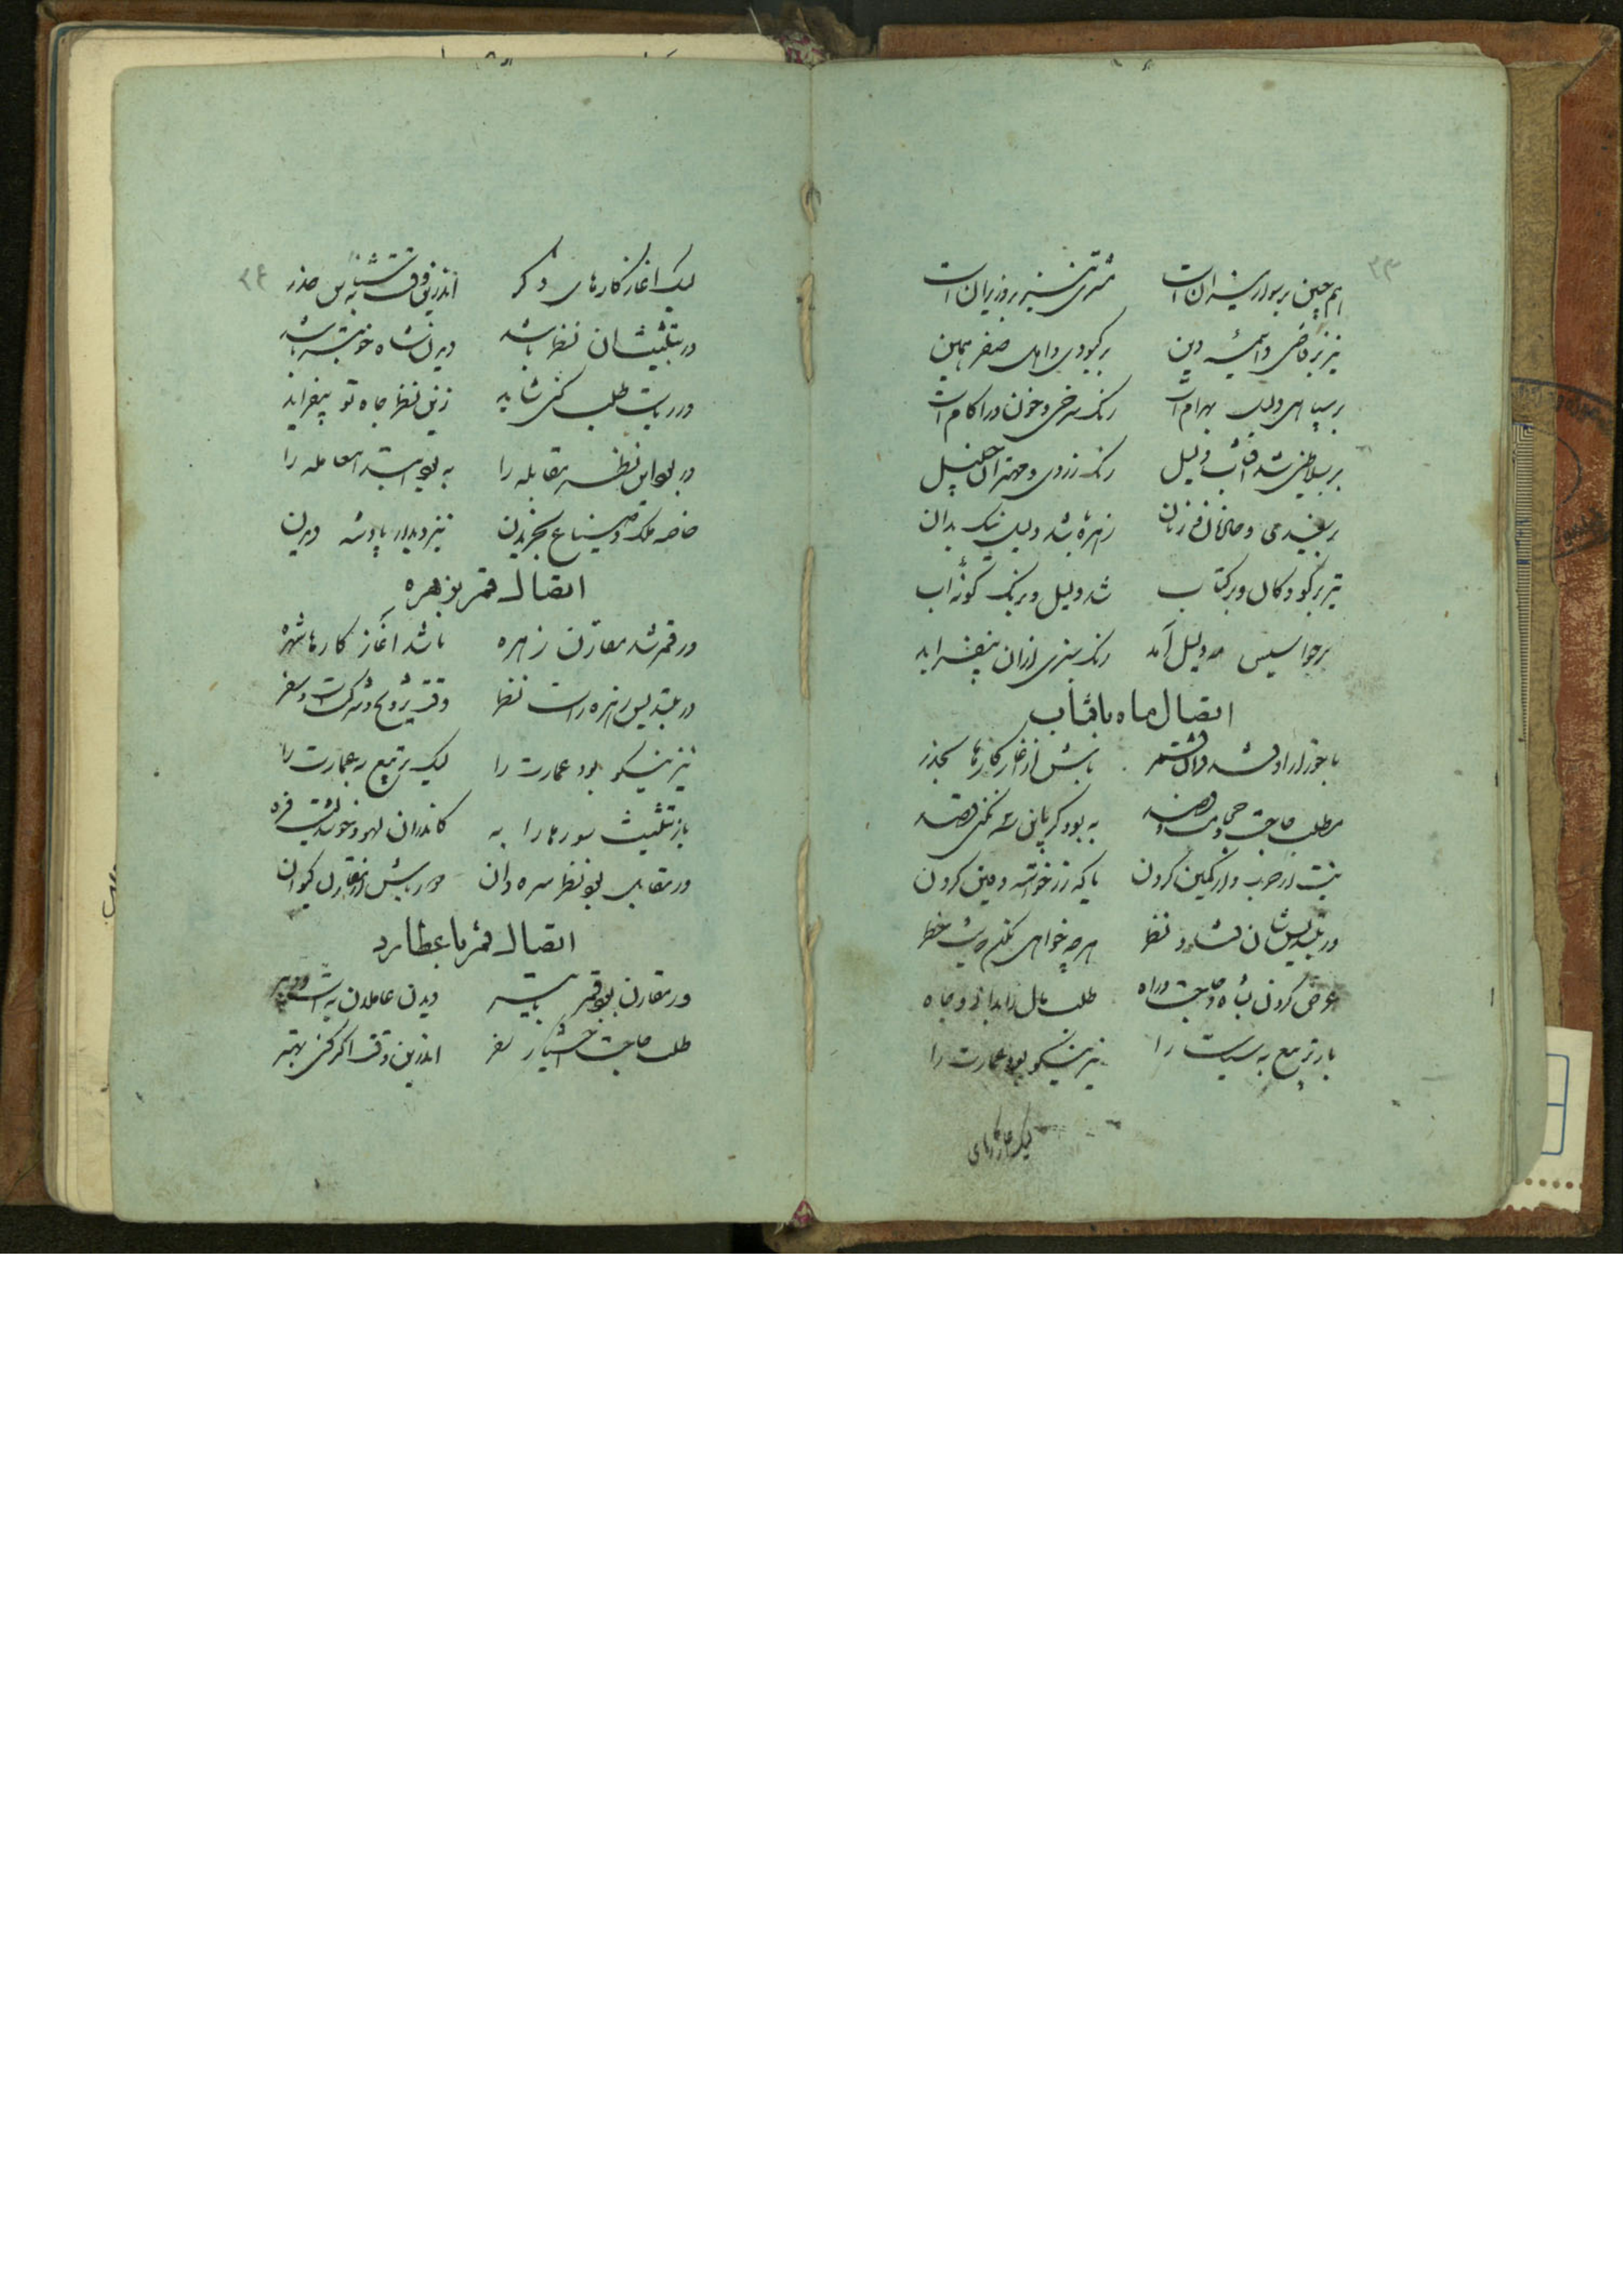 ۳۳
هم چنین بر سواریش ران است مشتری نیز بر وزیران است
نیز بر قاضی و ائمه دین بر کبودی و اهل صفر همین
بر سپاهی دلیل بهرام است رنک سرخی و خون ورا کام است
بر سلاطین شد آفتاب دلیل رنک زردی و مهتران جلیل
بر سفیدی و خادمان و زنان زهره شد دلیل نیک بدان
تیر بر کودکان و بر کتاب شد دلیل و برنک کونه آب
بر جواسیس مه دلیل آمد رنک سبزی ازان بیفزاید
اتصال ماه بافتاب
باش از آغاز کارها بحذر
مطلب حاجت و مه به بود کر بانی نکنی
نیت از حرب و از کمین کردن یا که زر خواسته دفین کردن
ور بتسدیس شان فتاد نظر هر چه خواهی بکن که نیست خطر
عرض کردن بشاه حاجت و راه طلب مال را بدان و جاه
باز تربیع به سیاست را نیز نیکو بود عمارت را
لیک آغاز کارهای
۳۴
لیک آغاز کارهای دکر اندرین وقت به حذر
ور بتثلیث شان نظر باشد دیدن شاه خوبتر باشد
ور ریاست طلب کنی شاید زین نظر جاه تو بیفزاید
ور بود این نظر مقابله را به بود ابتدا معامله را
خاصه ملک و ضیاع بخریدن نیز دیدار پادشه دیدن
اتصال قمر بزهره
ور قمر شد مقارن زهره باشد آغاز کارها شهره
ور بتسدیس زهره راست نظر وقت تزویج و شرکت و سفر
نیز نیکو بود عمارت را لیک تربیع به عمارت را
باز تثلیث سورها را به کاندران لهو و خوشدلیت فره
ور مقابل بود نظر سره دان
اتصال قمر با عطارد
ور مقارن بود قمر با تیر دیدن عاملان به است و دبیر
طلب حاجت اختیار سفر اندرین وقت اکر کنی بهتر